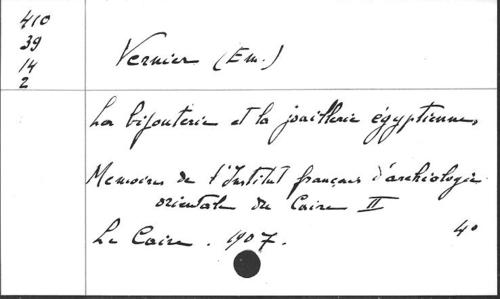 410
39
14
2
Vernier (Em.)
La bijouterie et la joaillerie égyptiennes
Memoires de l'Institut français d'archéologie
orientale du Caire II
4°
Le Caire. 1907.